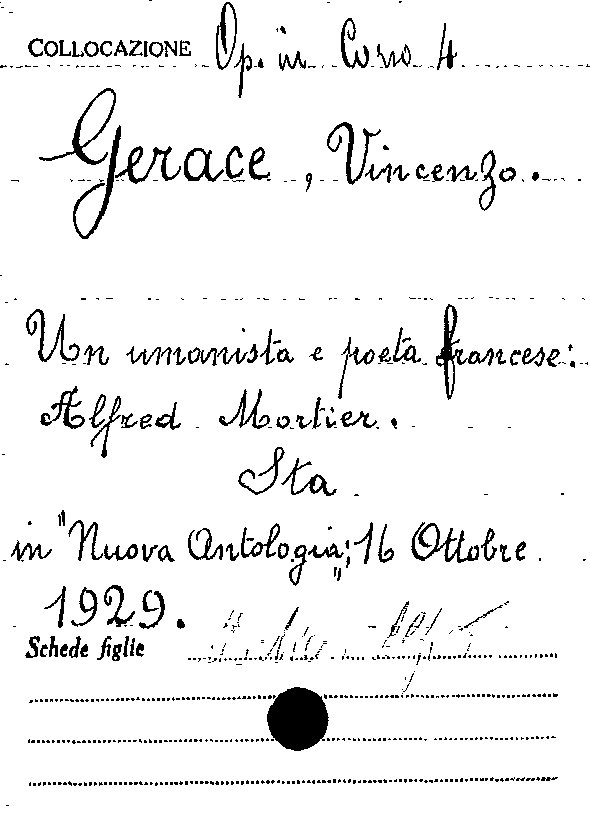 COLLOCAZIONE Op. in Corso 4
Gerace, Vincenzo.
Un umanista e poeta francese:
Alfred Mortier.
Sta
in "Nuova Antologia„; 16 Ottobre
1929.
Schede figlie